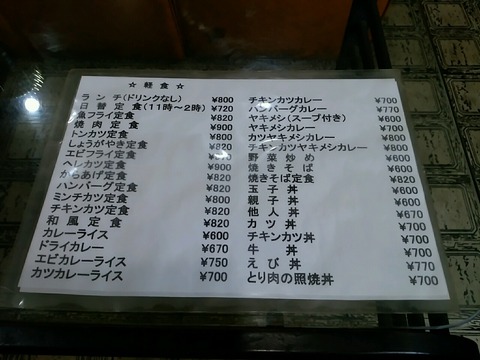 ☆ 軽 食 ☆
ランチ(ドリンクなし) ¥800
日 替 定 食(11時～2時) ¥720
魚フライ定食 ¥820
焼 肉 定 食 ¥900
トンカツ定食 ¥820
しょうがやき定食 ¥820
エビフライ定食
ヘレカツ定食 ¥900
からあげ定食 ¥820
ハンバーグ定食 ¥820
ミンチカツ定食 ¥800
チキンカツ定食 ¥820
和 風 定 食 ¥820
カレーライス ¥600
ドライカレー ¥670
エビカレーライス ¥750
カツカレーライス ¥700
チキンカツカレー ¥700
ハンバーグカレー ¥770
ヤキメシ(スープ付き) ¥600
ヤキメシカレー ¥700
カツヤキメシカレー ¥800
チキンカツヤキメシカレー ¥800
野 菜 炒 め ¥600
焼 き そ ば ¥600
焼きそば定食 ¥820
玉 子 丼 ¥600
親 子 丼 ¥600
他 人 丼 ¥670
カ ツ 丼 ¥700
チキンカツ丼 ¥700
牛 丼 ¥700
え び 丼 ¥770
とり肉の照焼丼 ¥700